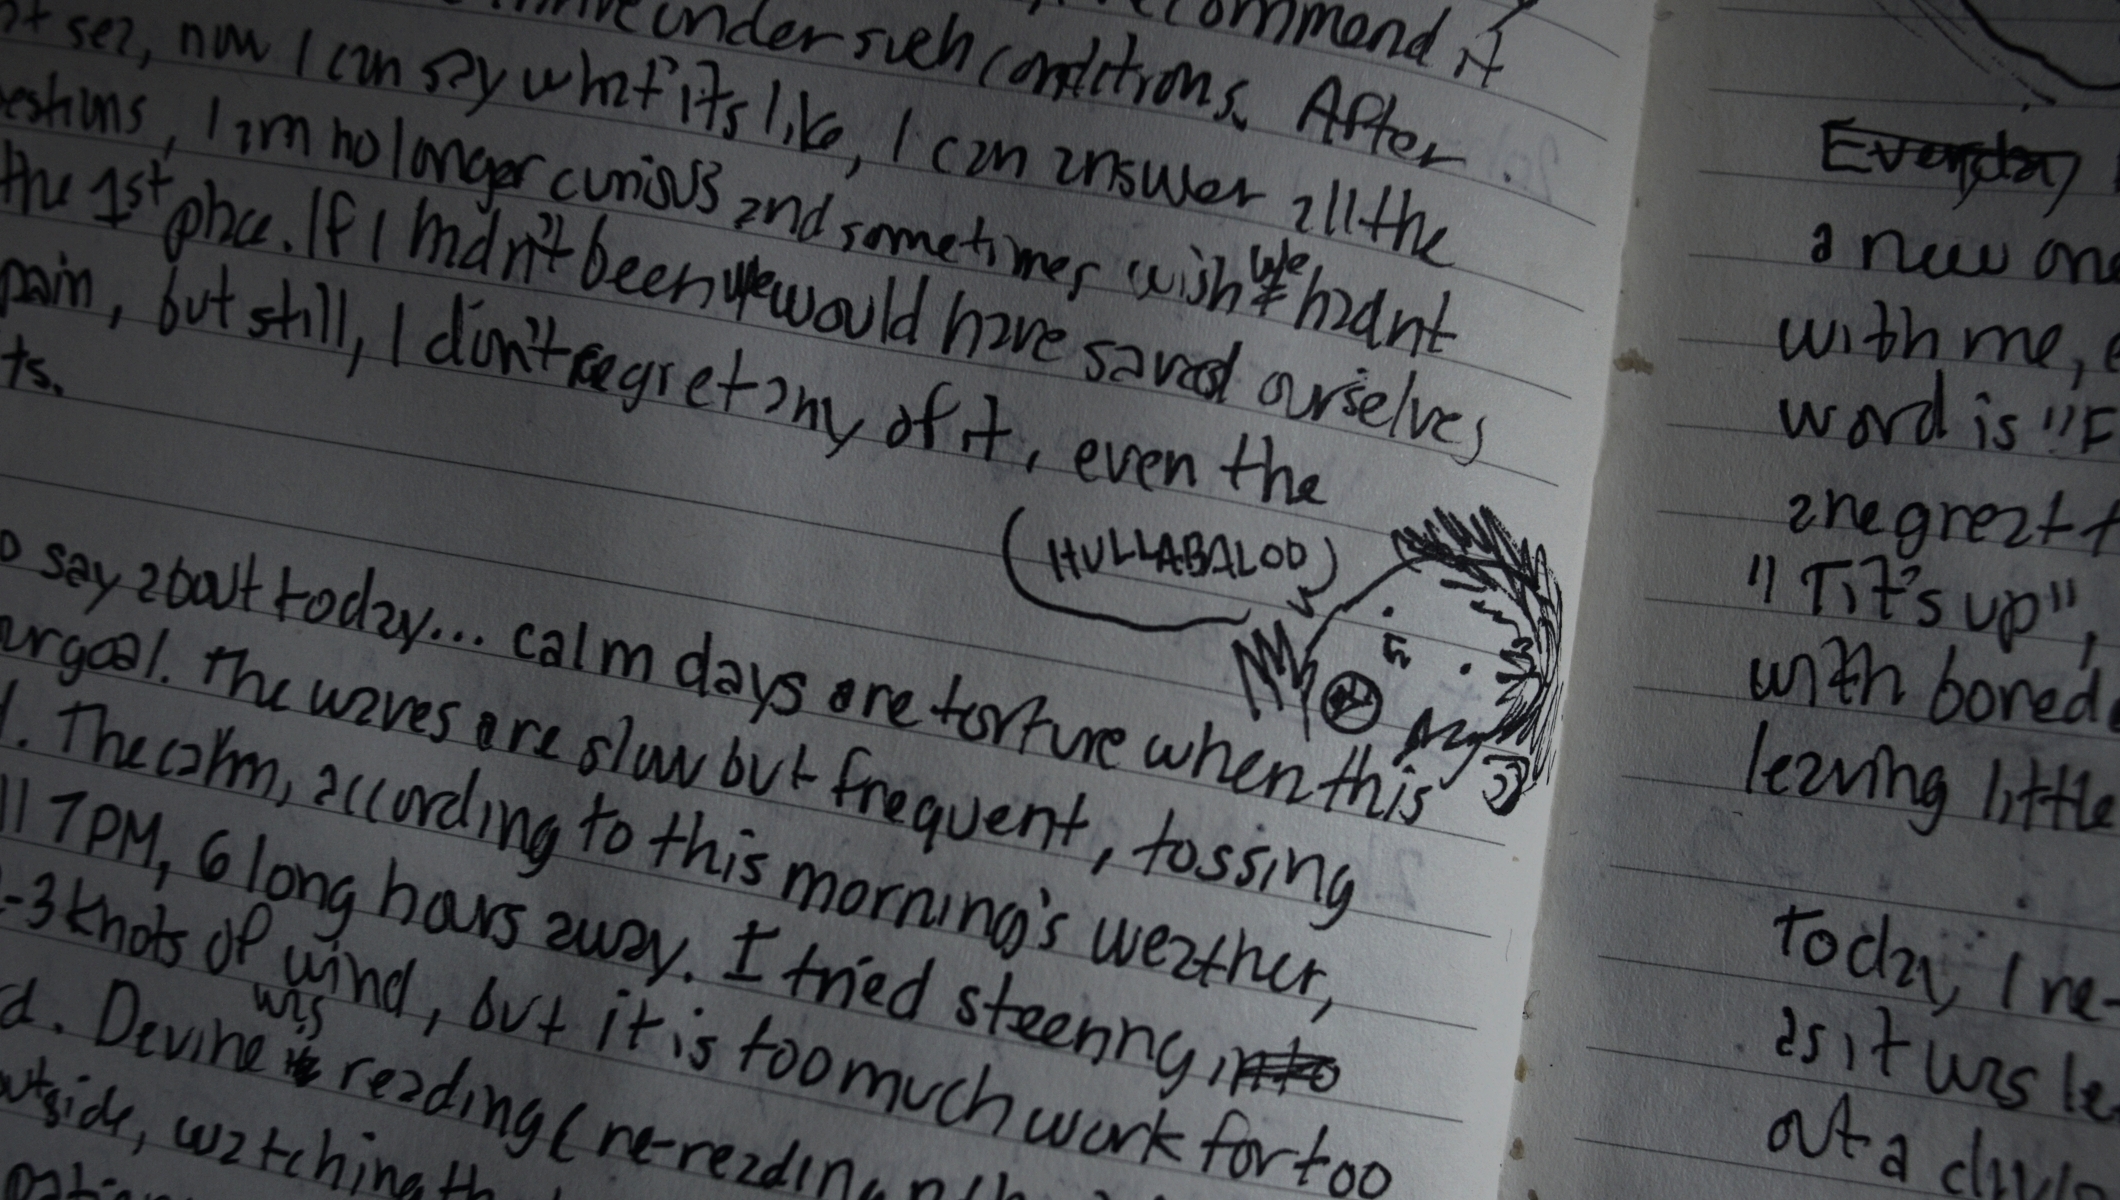 commend it
under such conditions. After
at sea, now I can say what its like, I can answer all the
I am no longer curious and sometimes wish we hadnt
the 1st place. If I hadn't been we would have saved ourselves
pain, but still, I don't regret any of it, even the
ts.
HULLABALOO
say about today... calm days are torture when this
ur goal. The waves are slow but frequent, tossing
. The calm, according to this morning's weather,
7PM, 6 long hours away. I tried steering into
-3 knots of wind, but it is too much work for too
d. Devine was reading (re-reading
outside, watching th
Everyday
a new one
with me,
word is "F
anegreat t
"Tit's up",
with bored
leaving little
today, I re-
as it was le
out a